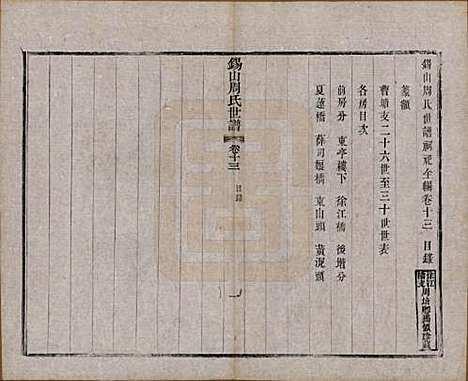 錫山周氏世譜禰祀全編卷十三 目錄
篆額
曹墳支二十六世至三十世世表
各房目次
前房分 東亭樓下 徐江橋 後增分
夏蓮橋 薛司堰橋 東山頭 黃泥頭
錫山周氏世譜 卷十三 目錄 一